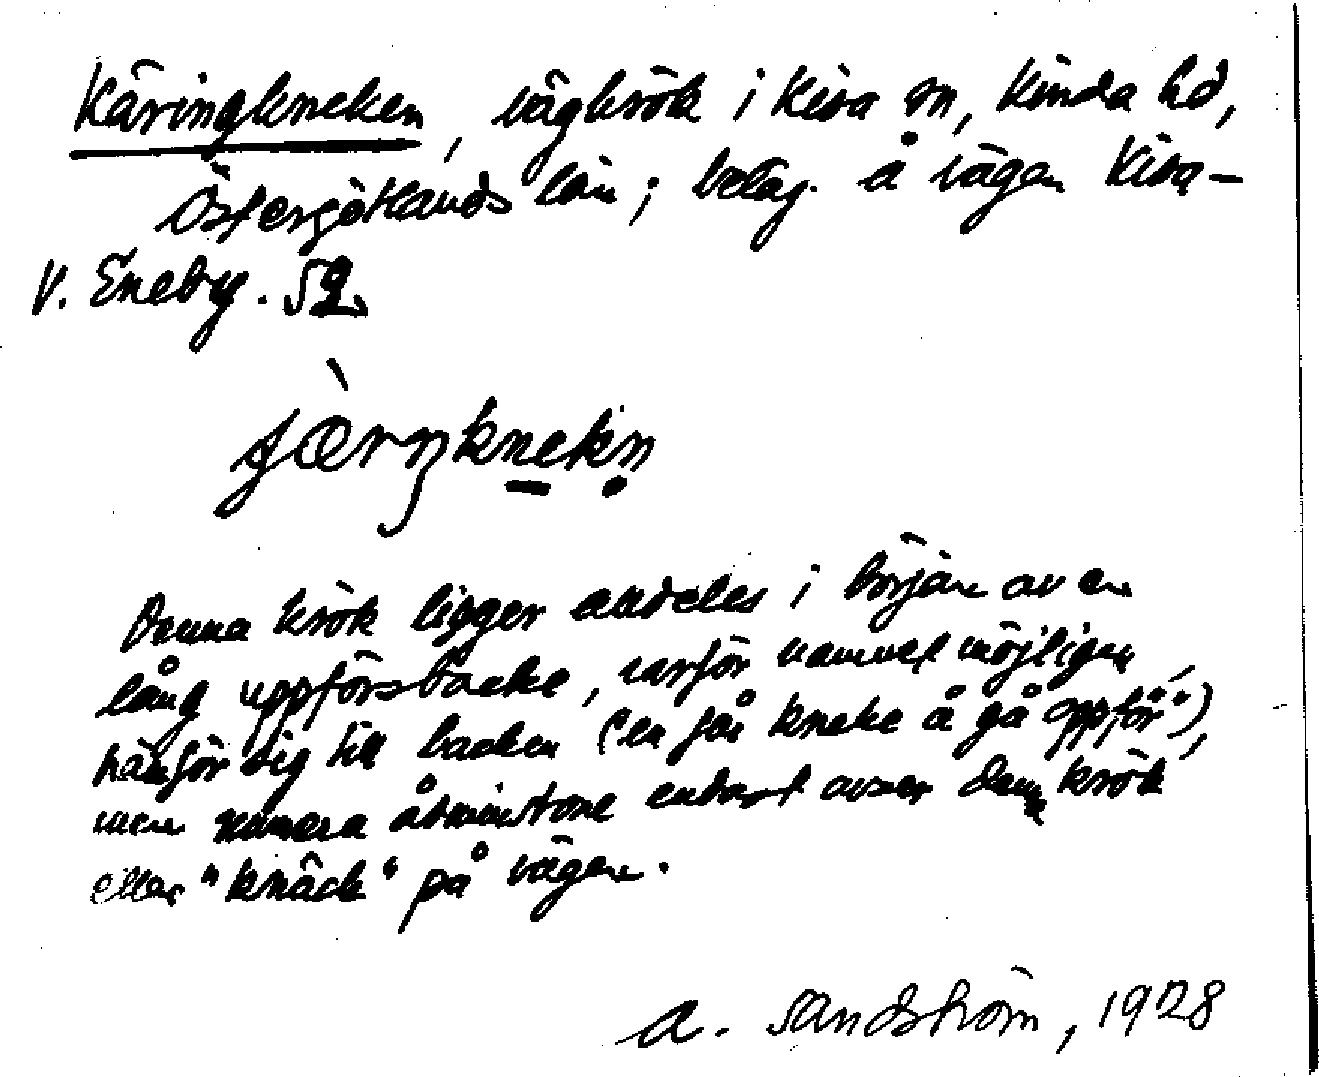 Käringkneken, vägkrök i Kisa sn, Kinda hd,
Östergötlands län; beläg. å vägen Kisa-
V. Eneby.
jærŋknekn
Denna krök ligger alldeles i början av en
lång uppförsbacke, varför namnet möjligen
hänför sig till backen ("en får kneke å gå oppför"),
men numera åtminstone endast avser denna krök
eller "knäck" på vägen.
A. Sandström, 1928